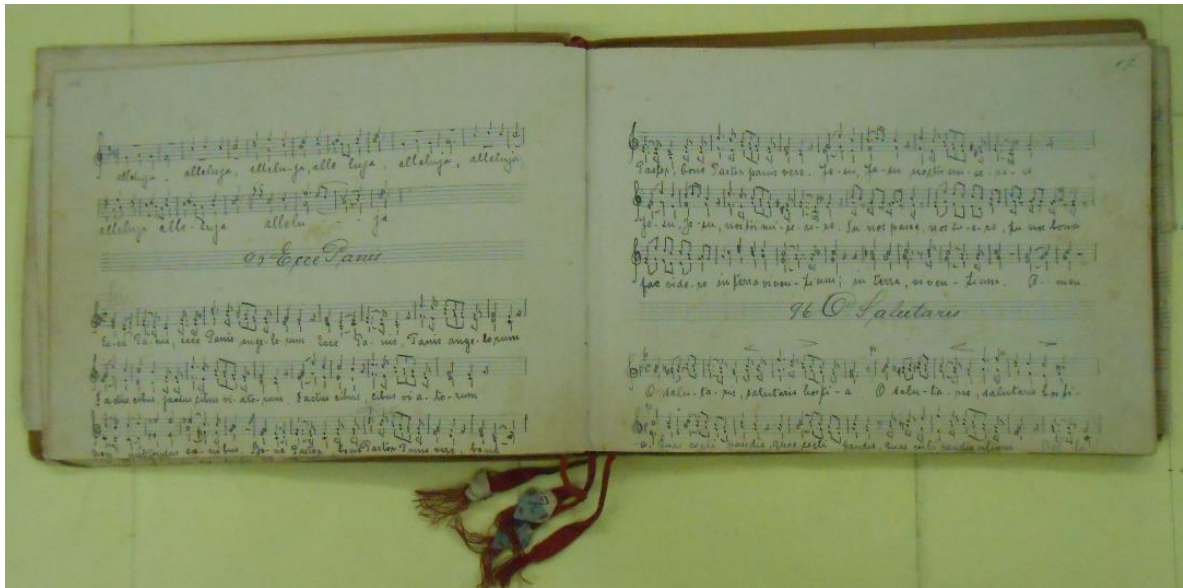 alleluja, alleluja, alleluja, alle luja, alleluja, alleluja
alleluja alle-luja allelu ja
95 Ecce Panis
Ec-ce Pa-nis, ecce Panis ange-lo rum Ecce Pa-nis, Panis ange-lorum
Factus cibus factus cibus vi-ato-rum Factus cibus, cibus vi a-to-rum
non mittendus ca-nibus Bo-ne Pastor bone Pastor Panis vere, bone
Pastor, bone Pastor panis vere. Je-su, Je-su nostri mi-se-re-re
Je-su, Je-su, nostri mi-se-re-re, Tu nos pasce, nos tu-e-re, tu nos bona
fac vide-re in terra viven-tium; in terra, viven-tium. A-men
96 O Salutaris
O salu-ta-ris, salutaris hosti-a O salu-ta-ris, salutaris hosti-
a. Quae coeli pandis, quae coeli pandis, quae coeli pandis ostium